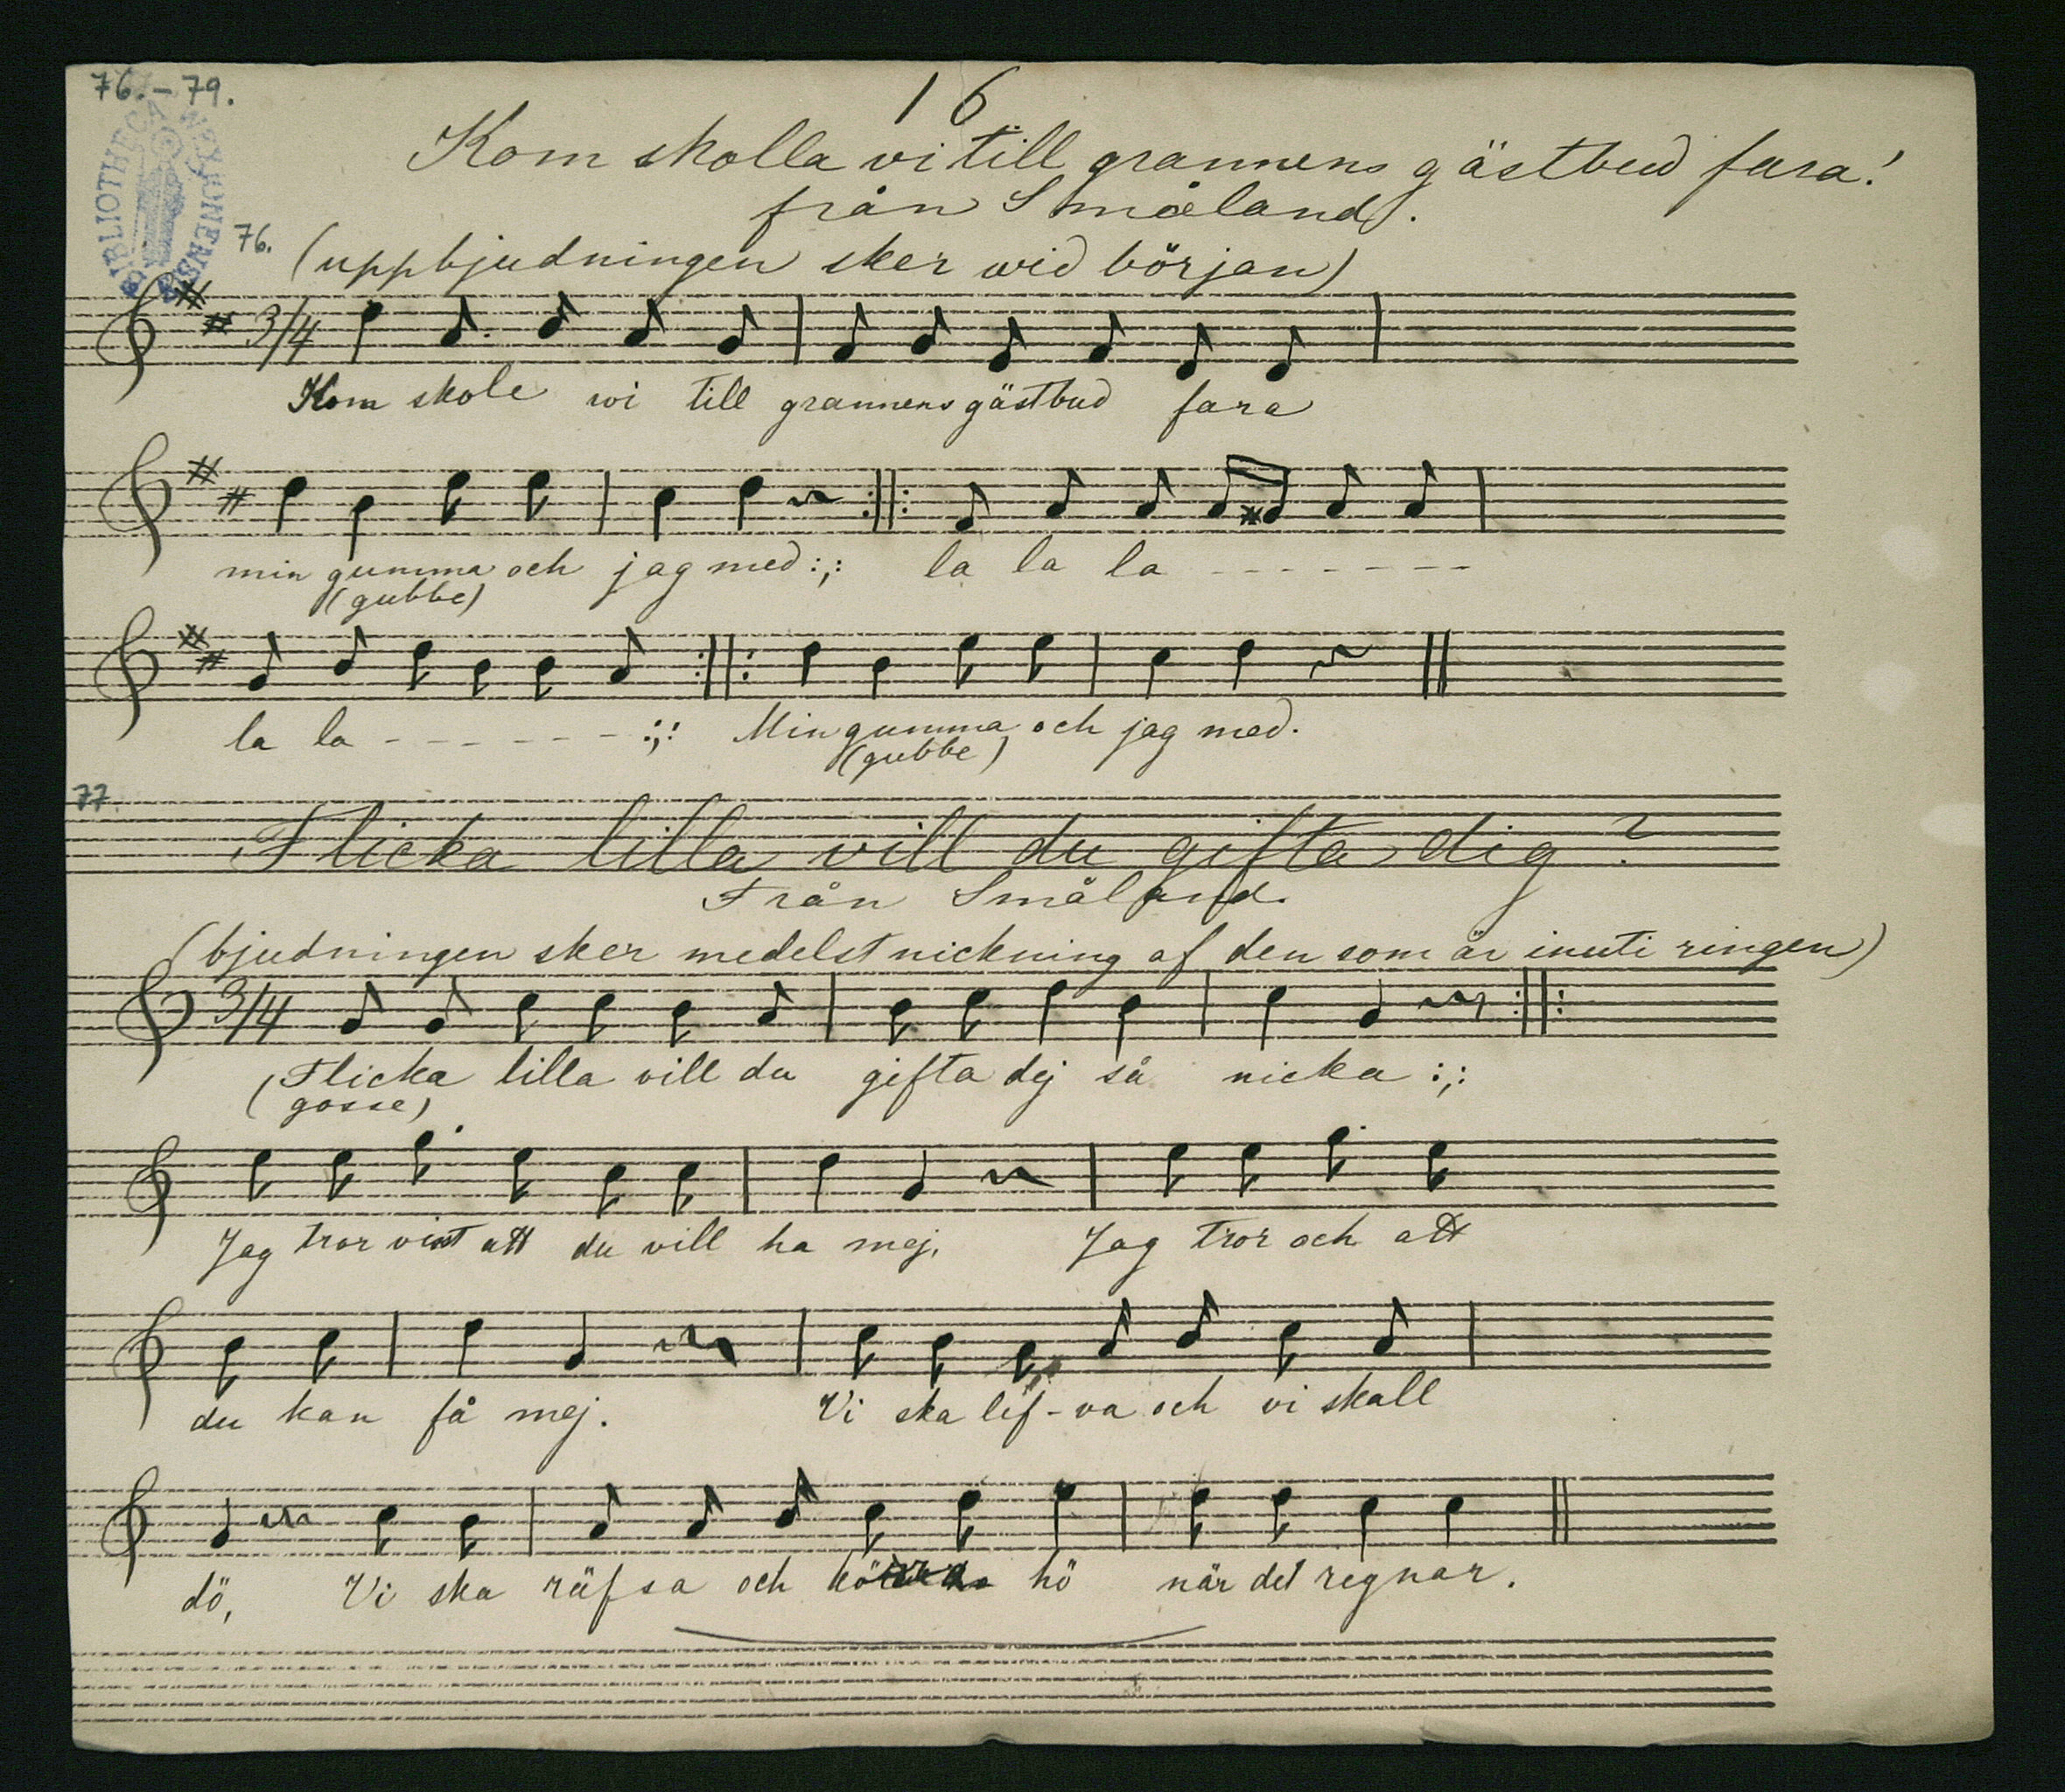 76.-79.
16
Kom skolla vi till grannens gästbud fara!
från Småland.
BIBLIOTHECA
76.
(uppbjudningen sker wid början)
3/4
Kom skole wi till grannens gästbud fara
min gumma och jag med :,: la la la - - - - - - -
(gubbe)
la la - - - - - - :,: Min gumma och jag med.
(gubbe)
77.
Flicka lilla vill du gifta dig?
Från Småland.
(bjudningen sker medelst nickning af den som är inuti ringen)
3/4
(Flicka lilla vill du gifta dej så nicka :,:
gosse)
Jag tror visst att du vill ha mej, Jag tror och att
du kan få mej. Vi ska lef-va och vi skall
dö, Vi ska räfsa och hö när det regnar.